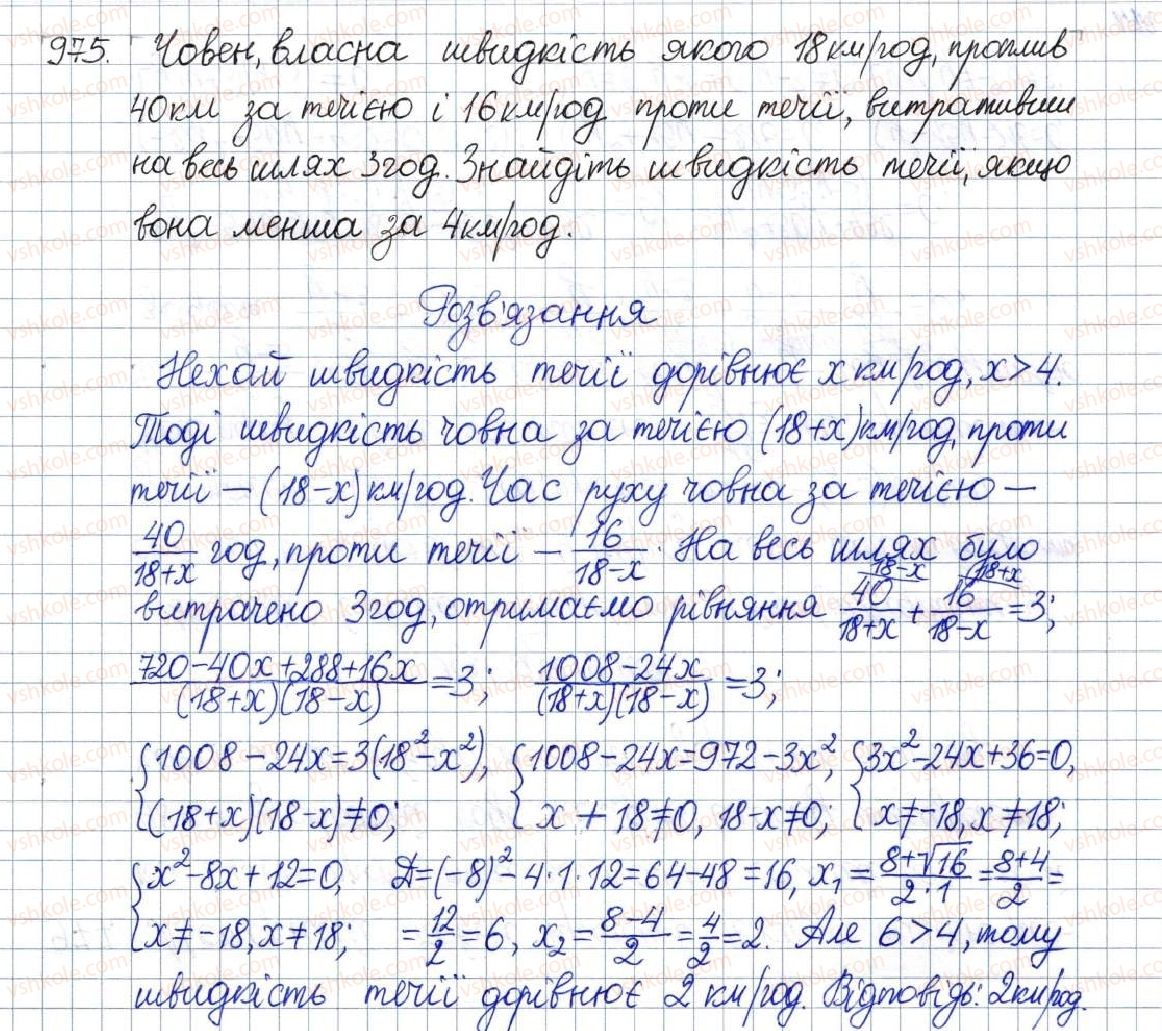 975. Човен, власна швидкість якого 18 км/год, проплив
40 км за течією і 16 км/год проти течії, витративши
на весь шлях 3 год. Знайдіть швидкість течії, якщо
вона менша за 4 км/год.
Розв'язання
Нехай швидкість течії дорівнює x км/год, x > 4.
Тоді швидкість човна за течією (18+x) км/год, проти
течії – (18-x) км/год. Час руху човна за течією –
40/(18+x) год, проти течії – 16/(18-x). На весь шлях було
витрачено 3 год, отримаємо рівняння 40/(18+x) ^(18-x) + 16/(18-x) ^(18+x) = 3;
(720-40x+288+16x)/((18+x)(18-x)) = 3; (1008-24x)/((18+x)(18-x)) = 3;
{1008-24x=3(18²-x²), {1008-24x=972-3x², {3x²-24x+36=0,
{(18+x)(18-x)≠0; {x+18≠0, 18-x≠0; {x≠-18, x≠18;
{x²-8x+12=0, Д=(-8)²-4·1·12=64-48=16, x₁=(8+√16)/(2·1)=(8+4)/2=
{x≠-18, x≠18; =12/2=6, x₂=(8-4)/2=4/2=2. Але 6>4, тому
швидкість течії дорівнює 2 км/год. Відповідь: 2 км/год.
vshkole.com